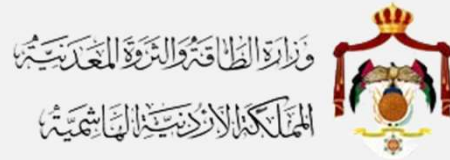 وزارة الطاقة والثروة المعدنية
المملكة الأردنية الهاشمية